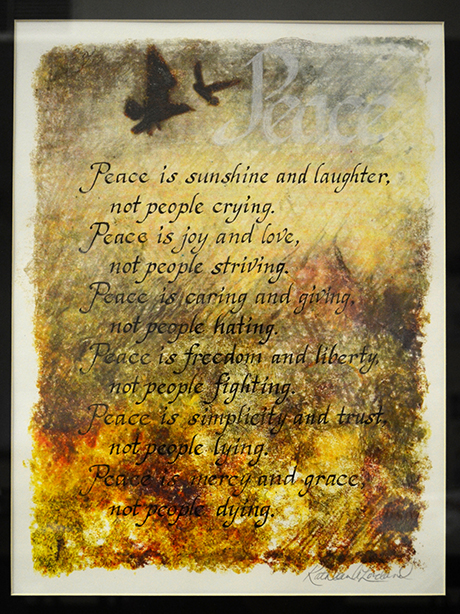 Peace
Peace is sunshine and laughter,
not people crying.
Peace is joy and love,
not people striving.
Peace is caring and giving,
not people hating.
Peace is freedom and liberty,
not people fighting.
Peace is simplicity and trust,
not people lying.
Peace is mercy and grace,
not people dying.